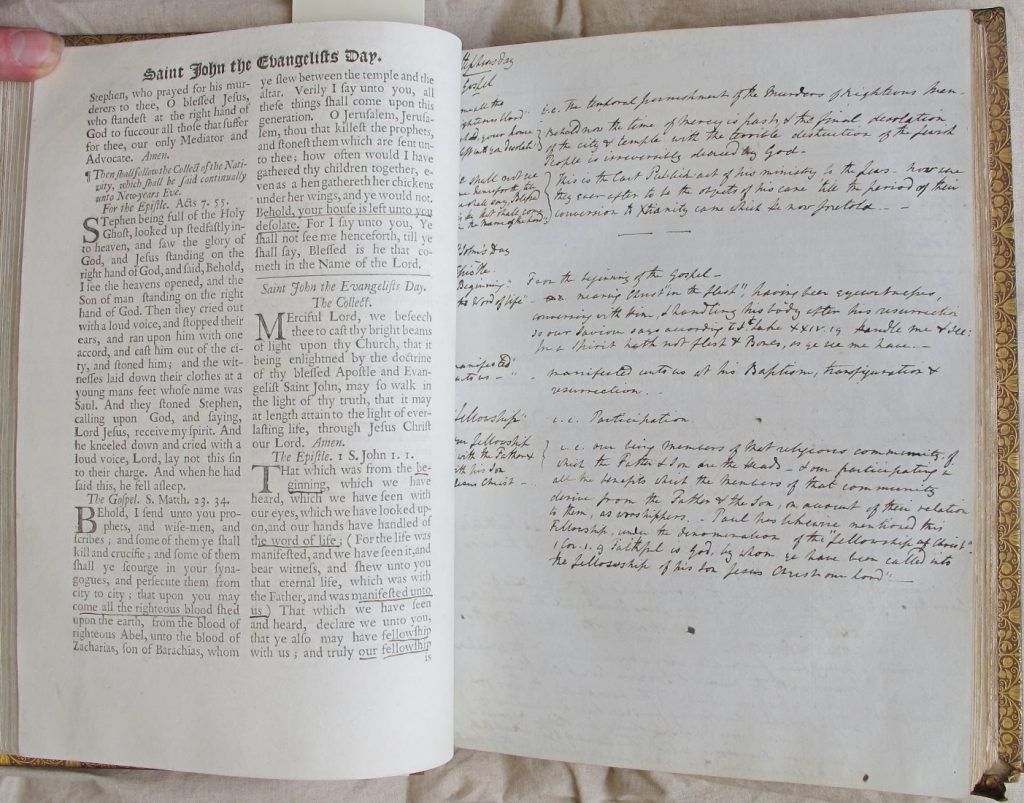 Saint John the Evangelists Day.
Stephen, who prayed for his mur-
derers to thee, O blessed Jesus,
who standest at the right hand of
God to succour all those that suffer
for thee, our only Mediator and
Advocate. Amen.
¶ Then shall follow the Collect of the Nati-
vity, which shall be said continually
unto New-years Eve.
For the Epistle. Acts 7. 55.
Stephen being full of the Holy
Ghost, looked up stedfastly in-
to heaven, and saw the glory of
God, and Jesus standing on the
right hand of God, and said, Behold,
I see the heavens opened, and the
Son of man standing on the right
hand of God. Then they cried out
with a loud voice, and stopped their
ears, and ran upon him with one
accord, and cast him out of the ci-
ty, and stoned him; and the wit-
nesses laid down their clothes at a
young mans feet whose name was
Saul. And they stoned Stephen,
calling upon God, and saying,
Lord Jesus, receive my spirit. And
he kneeled down and cried with a
loud voice, Lord, lay not this sin
to their charge. And when he had
said this, he fell asleep.
The Gospel. S. Matth. 23. 34.
Behold, I send unto you pro-
phets, and wise-men, and
scribes; and some of them ye shall
kill and crucifie; and some of them
shall ye scourge in your syna-
gogues, and persecute them from
city to city; that upon you may
come all the righteous blood shed
upon the earth, from the blood of
righteous Abel, unto the blood of
Zacharias, son of Barachias, whom
ye slew between the temple and the
altar. Verily I say unto you, all
these things shall come upon this
generation. O Jerusalem, Jerusa-
lem, thou that killest the prophets,
and stonest them which are sent un-
to thee; how often would I have
gathered thy children together, e-
ven as a hen gathereth her chickens
under her wings, and ye would not.
Behold, your house is left unto you
desolate. For I say unto you, Ye
shall not see me henceforth, till ye
shall say, Blessed is he that co-
meth in the Name of the Lord.
Saint John the Evangelists Day.
The Collect.
Merciful Lord, we beseech
thee to cast thy bright beams
of light upon thy Church, that it
being enlightned by the doctrine
of thy blessed Apostle and Evan-
gelist Saint John, may so walk in
the light of thy truth, that it may
at length attain to the light of ever-
lasting life, through Jesus Christ
our Lord. Amen.
The Epistle. 1 S. John 1. 1.
That which was from the be-
ginning, which we have
heard, which we have seen with
our eyes, which we have looked up-
on, and our hands have handled of
the word of life; (For the life was
manifested, and we have seen it, and
bear witness, and shew unto you
that eternal life, which was with
the Father, and was manifested unto
us) That which we have seen
and heard, declare we unto you,
that ye also may have fellowship
with us; and truly our fellowship
is
Gospel
i.e. The temporal punishment of the Murders of Righteous Men.
Behold now the time of Mercy is past, & the final desolation
of the city & temple with the terrible destruction of the Jewish
People is irreversibly decreed by God -
This is the last Publick act of his ministry to the Jews. Now were
they ever after to be the objects of his care till the period of their
conversion to Xtianity came which he now foretold
St John's Day
Epistle.
Beginning:
From the beginning of the Gospel -
the Word of life" -
meaning Christ "in the flesh", having been eyewitnesses,
conversing with him, & handling his body after his resurrection
as our Saviour says according to St Luke XXIV. 39 Handle me & see:
for a Spirit hath not flesh & Bones, as ye see me have. -
manifested
unto us - "
manifested unto us at his Baptism, transfiguration &
resurrection.
fellowship"
i.e. Participation
our fellowship
with the Father &
with his Son
Jesus Christ -
i.e. our being members of that religious community, of
which the Father & Son are the Heads - & our participating in
all the benefits which the members of that community
derive from the Father & the Son, on account of their relation
to them, as worshippers. - Paul has likewise mentioned this
Fellowship, under the denomination of the fellowship of Christ
1 Cor. 1. 9 Faithful is God, by whom ye have been called into
the fellowship of his Son Jesus Christ our Lord". -